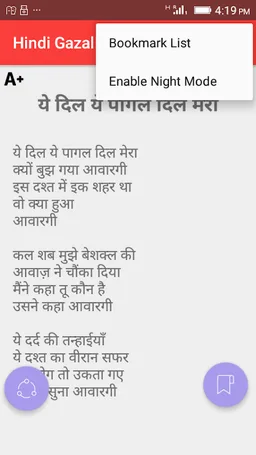 4:19 PM
Hindi Gazal
Bookmark List
Enable Night Mode
A+
ये दिल ये पागल दिल मेरा
ये दिल ये पागल दिल मेरा
क्यों बुझ गया आवारगी
इस दश्त में इक शहर था
वो क्या हुआ
आवारगी
कल शब मुझे बेशक्ल की
आवाज़ ने चौंका दिया
मैंने कहा तू कौन है
उसने कहा आवारगी
ये दर्द की तन्हाईयाँ
ये दश्त का वीरान सफर
तो उकता गए
सुना आवारगी